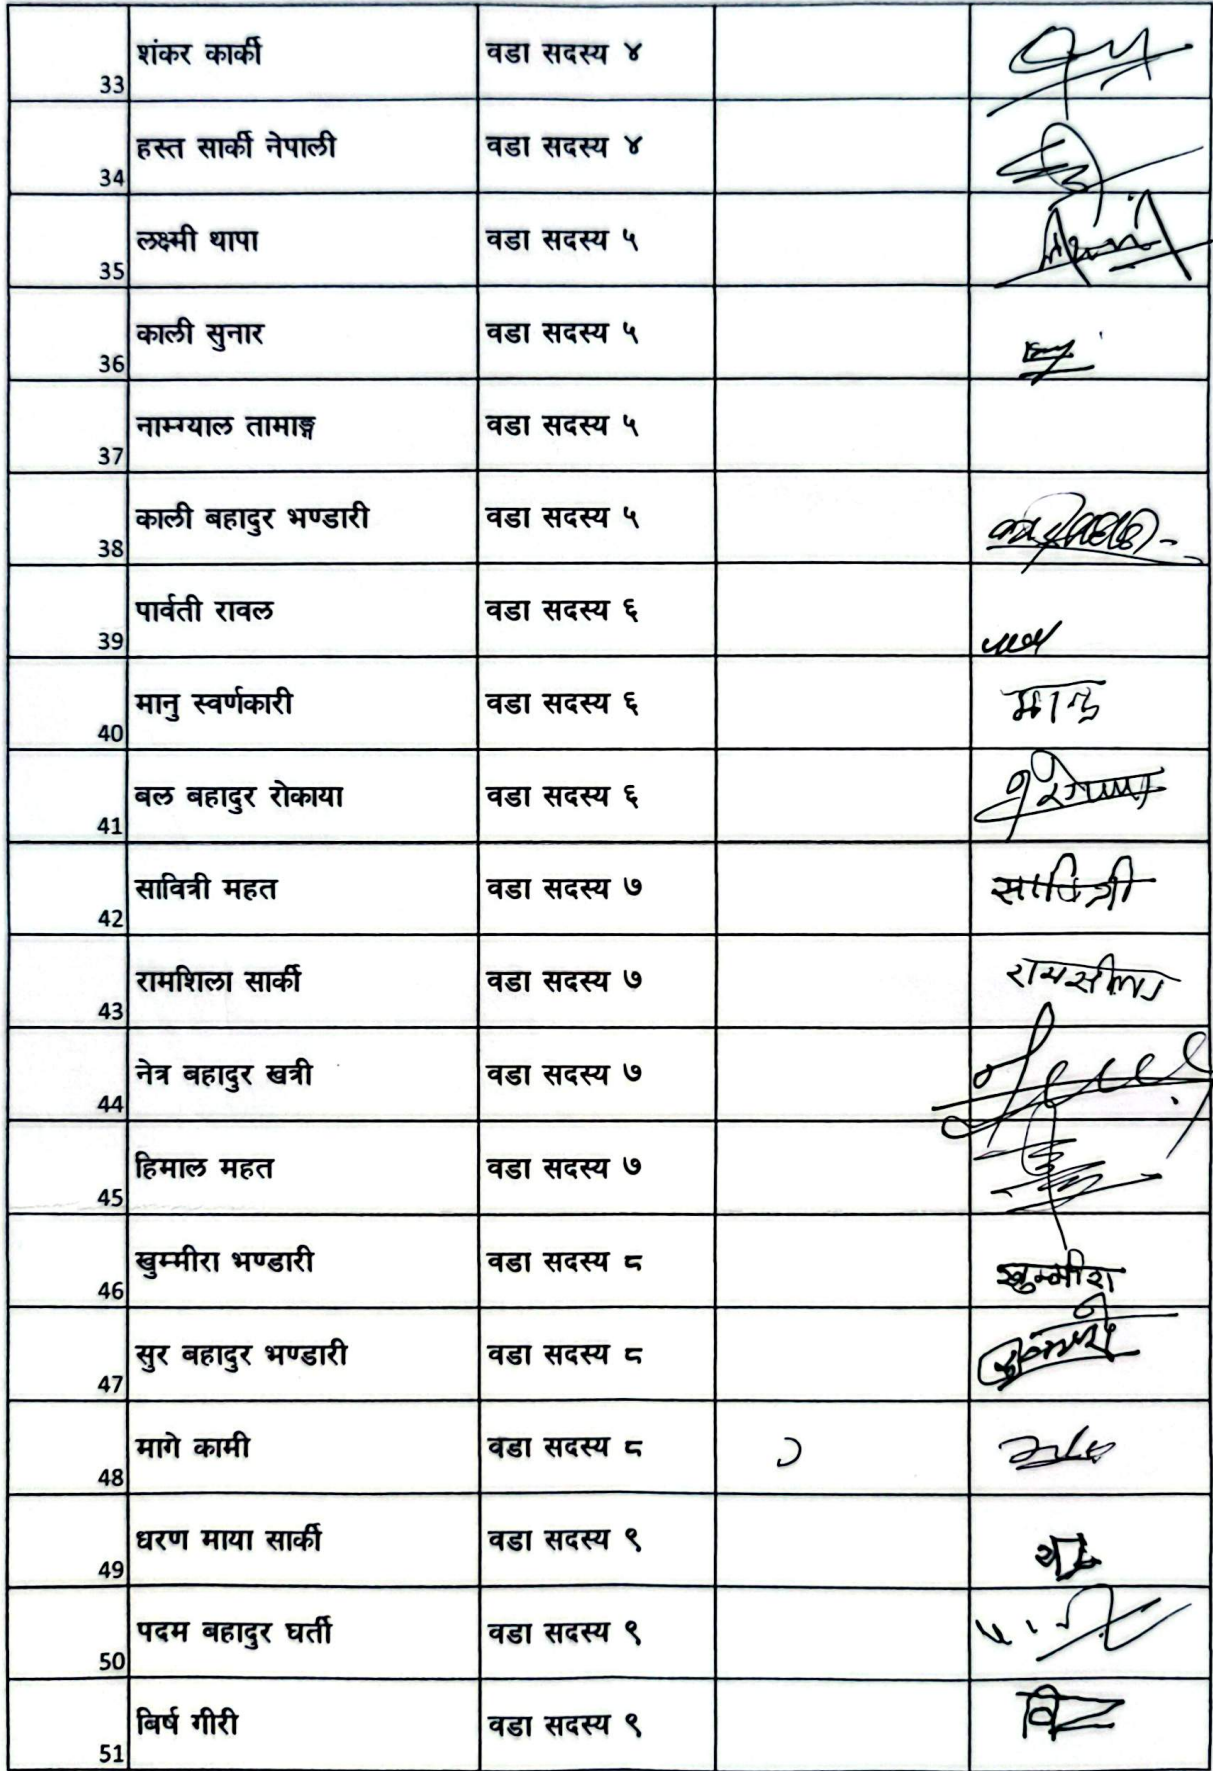 33 शंकर कार्की वडा सदस्य ४
34 हस्त सार्की नेपाली वडा सदस्य ४
35 लक्ष्मी थापा वडा सदस्य ५
36 काली सुनार वडा सदस्य ५
37 नाम्ग्याल तामाङ्ग वडा सदस्य ५
38 काली बहादुर भण्डारी वडा सदस्य ५
39 पार्वती रावल वडा सदस्य ६
40 मानु स्वर्णकारी वडा सदस्य ६ मानु
41 बल बहादुर रोकाया वडा सदस्य ६
42 सावित्री महत वडा सदस्य ७ सावित्री
43 रामशिला सार्की वडा सदस्य ७ रामसीला
44 नेत्र बहादुर खत्री वडा सदस्य ७
45 हिमाल महत वडा सदस्य ७
46 खुम्मीरा भण्डारी वडा सदस्य ८ खुम्मीरा
47 सुर बहादुर भण्डारी वडा सदस्य ८
48 मागे कामी वडा सदस्य ८
49 धरण माया सार्की वडा सदस्य ९
50 पदम बहादुर घर्ती वडा सदस्य ९
51 बिर्ष गीरी वडा सदस्य ९